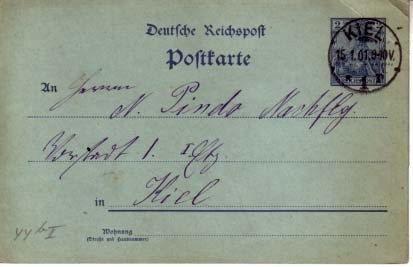 Deutsche Reichspost
Postkarte
2
KIEL
15.1.01.9-10V.
1
An Herrn
N. Pindo Nachflg.
Vorstadt 1. I Etg.
in Kiel
Wohnung
(Straße und Hausnummer)